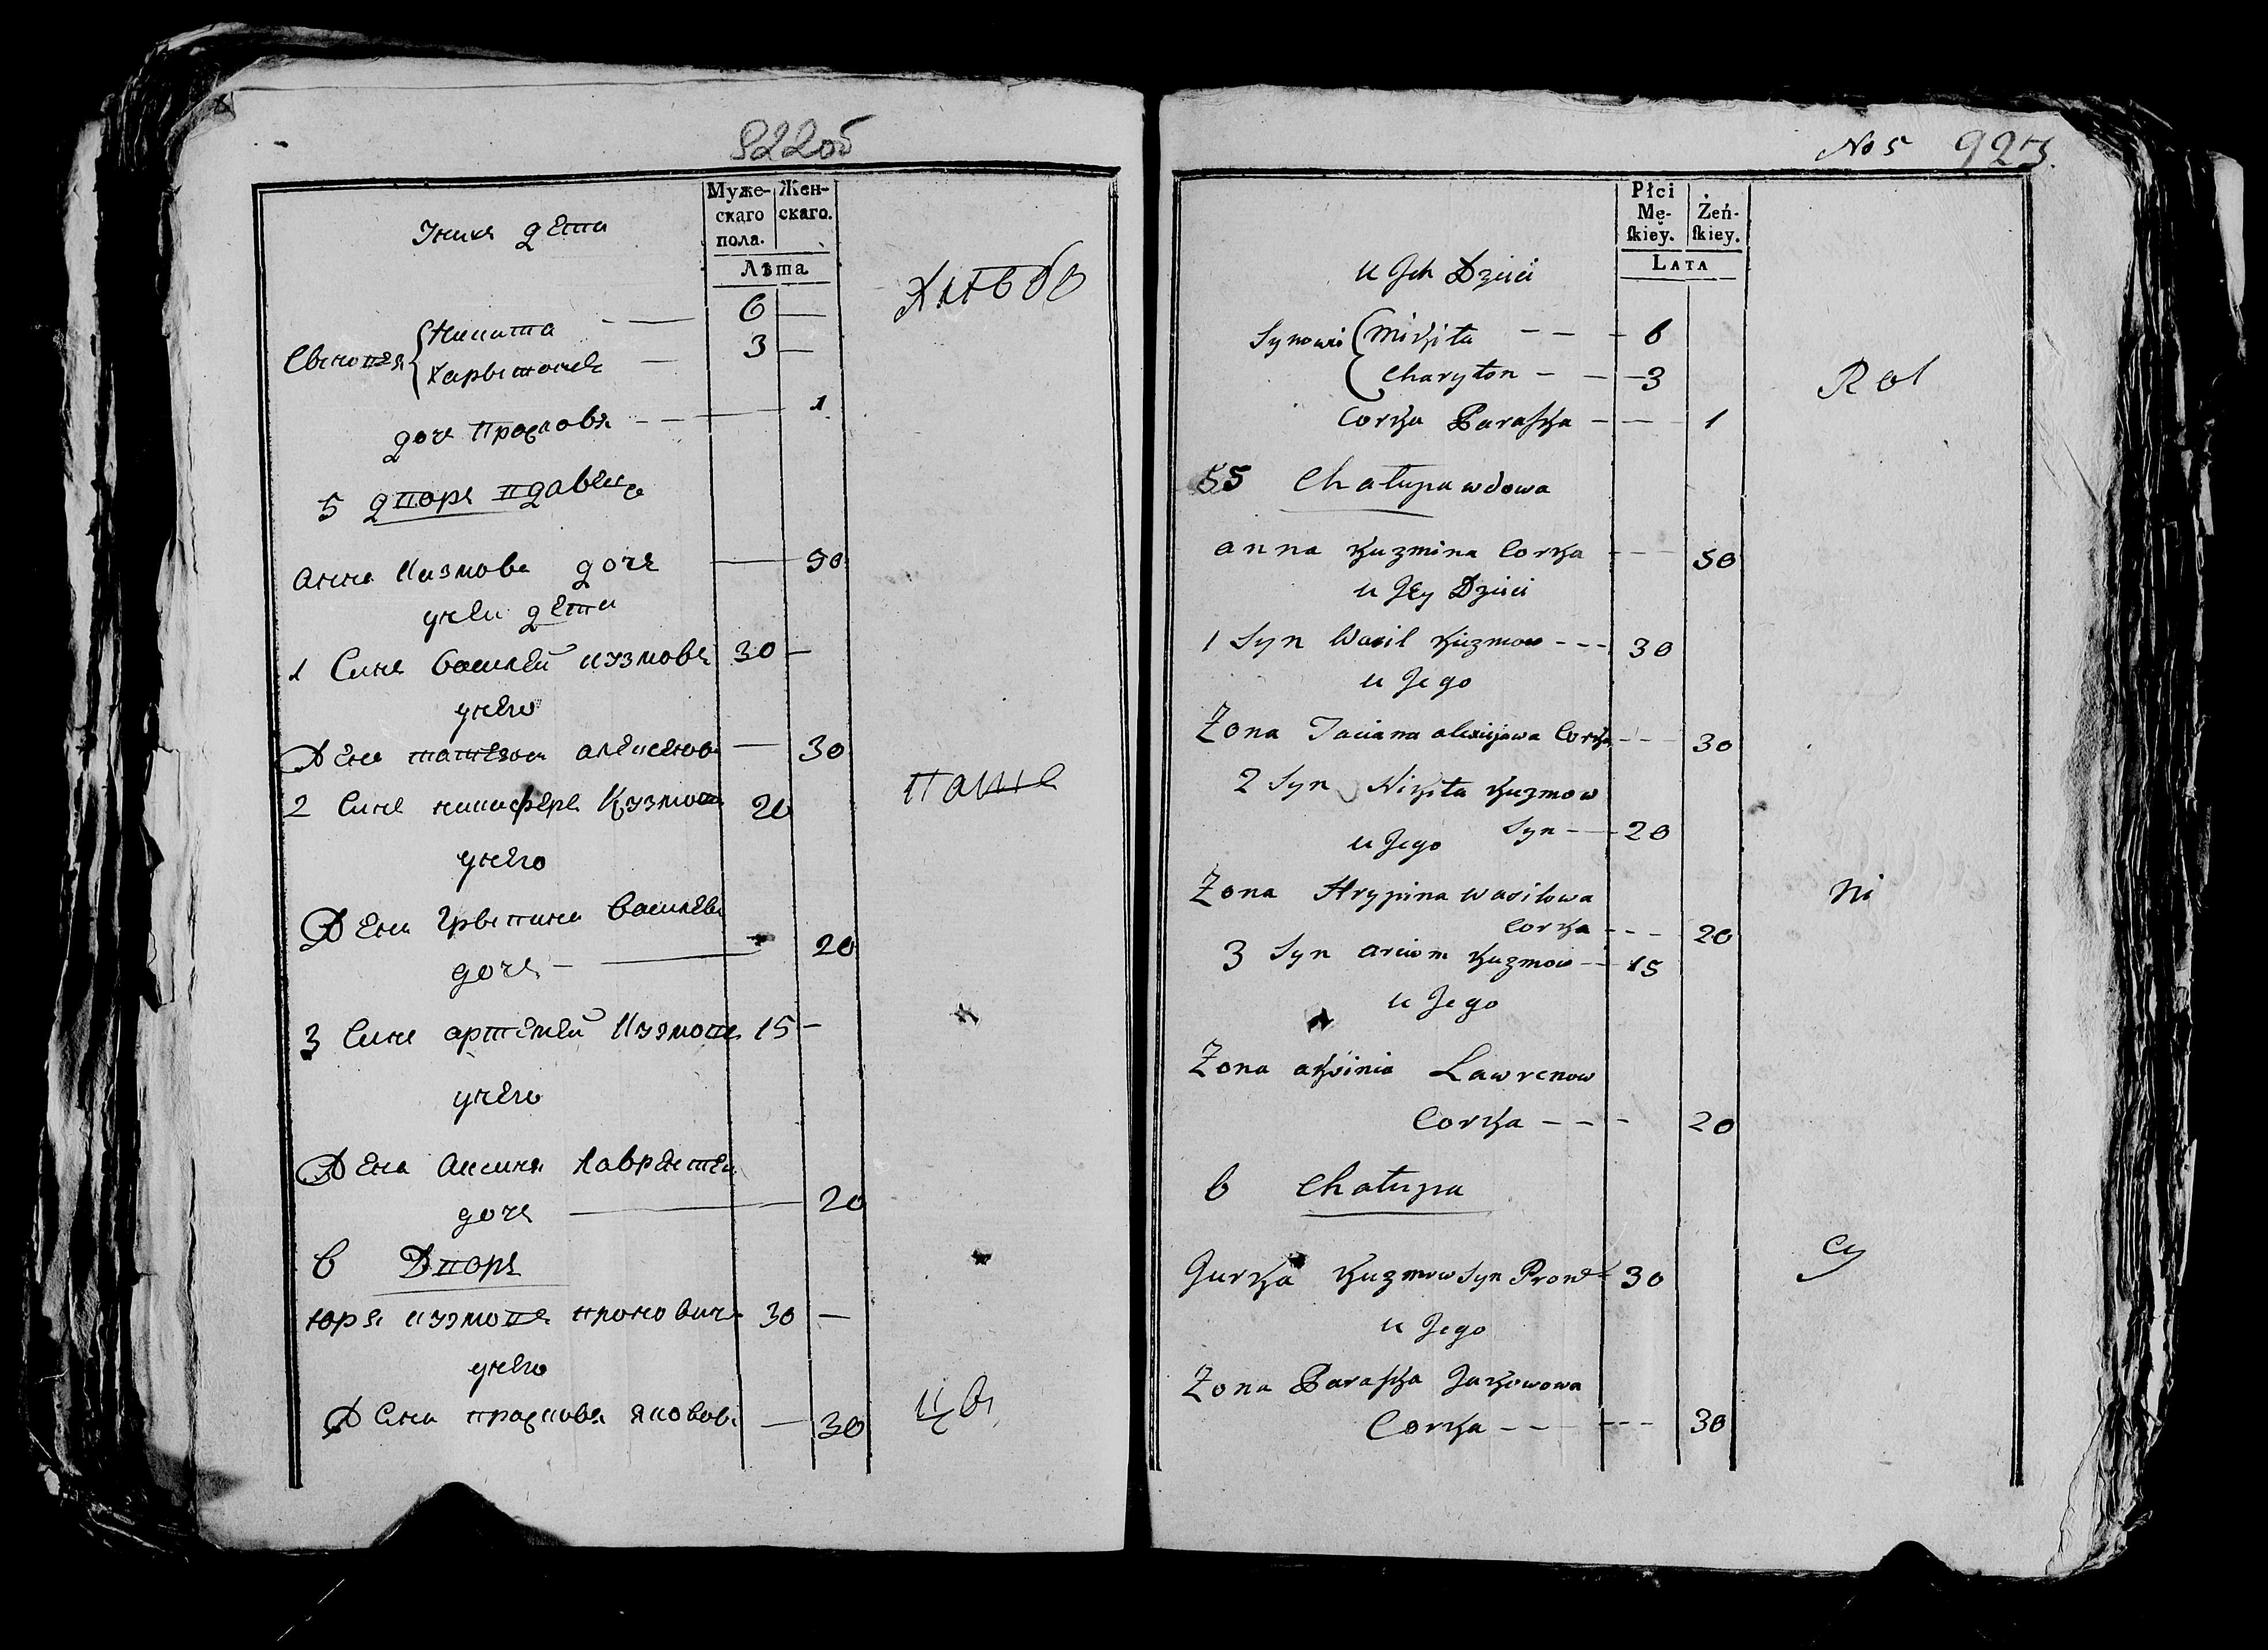 822об
Муже-
скаго
пола.
Жен-
скаго.
Лѣта
У них дети
Хлебо
Синовя
Никита — 6 —
Харытонъ — 3 —
доч Прасковя — — 1
5 двор вдавец
Анна Кузмова доч — 50
у неи дети
1 Синъ Василей Кузмовъ 30 —
у него
Жена татяна алексеюва — 30
2 Синъ никифоръ Кузмовъ 20
у него
Жена Грыпина Василева
доч — 20
3 Синъ артемей Кузмовъ 15 —
у него
Жена Аксиня лаврентева
доч — 20
6 Двор
паше
юря кузмовъ пронович 30 —
у него
Жена прасковя яковова — 30
цы
No 5 923.
Płci
Mę-
skiey.
Żeń-
skiey.
LATA
u Jch Dzieci
Synowie
Mikita - - - 6
Charyton - - - 3
Corka Paraska - - - 1
Rol
55 Chałupa wdowa
anna Kuzmina Corka - - 50
u Jey Dzieci
1 Syn Wasil Kuzmow - - - 30
u Jego
Żona Taciana alexiejowa Corka - - - 30
2 Syn Nikita Kuzmow
Syn - - 20
u Jego
Żona Hrypina wasilowa
Corka - - - 20
ni
3 Syn arciom Kuzmow - - 15
u Jego
Żona aksinia Lawrenow
Corka - - - 20
6 Chałupa
cy
Jurka Kuzmow Syn Pron - 30
u Jego
Żona Paraska Jakowowa
Corka - - - - - 30